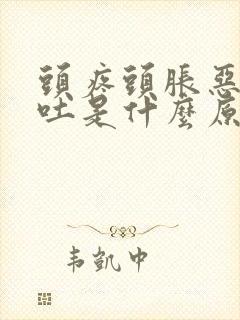 頭疼頭脹惡
吐是什麼原
韦凱中